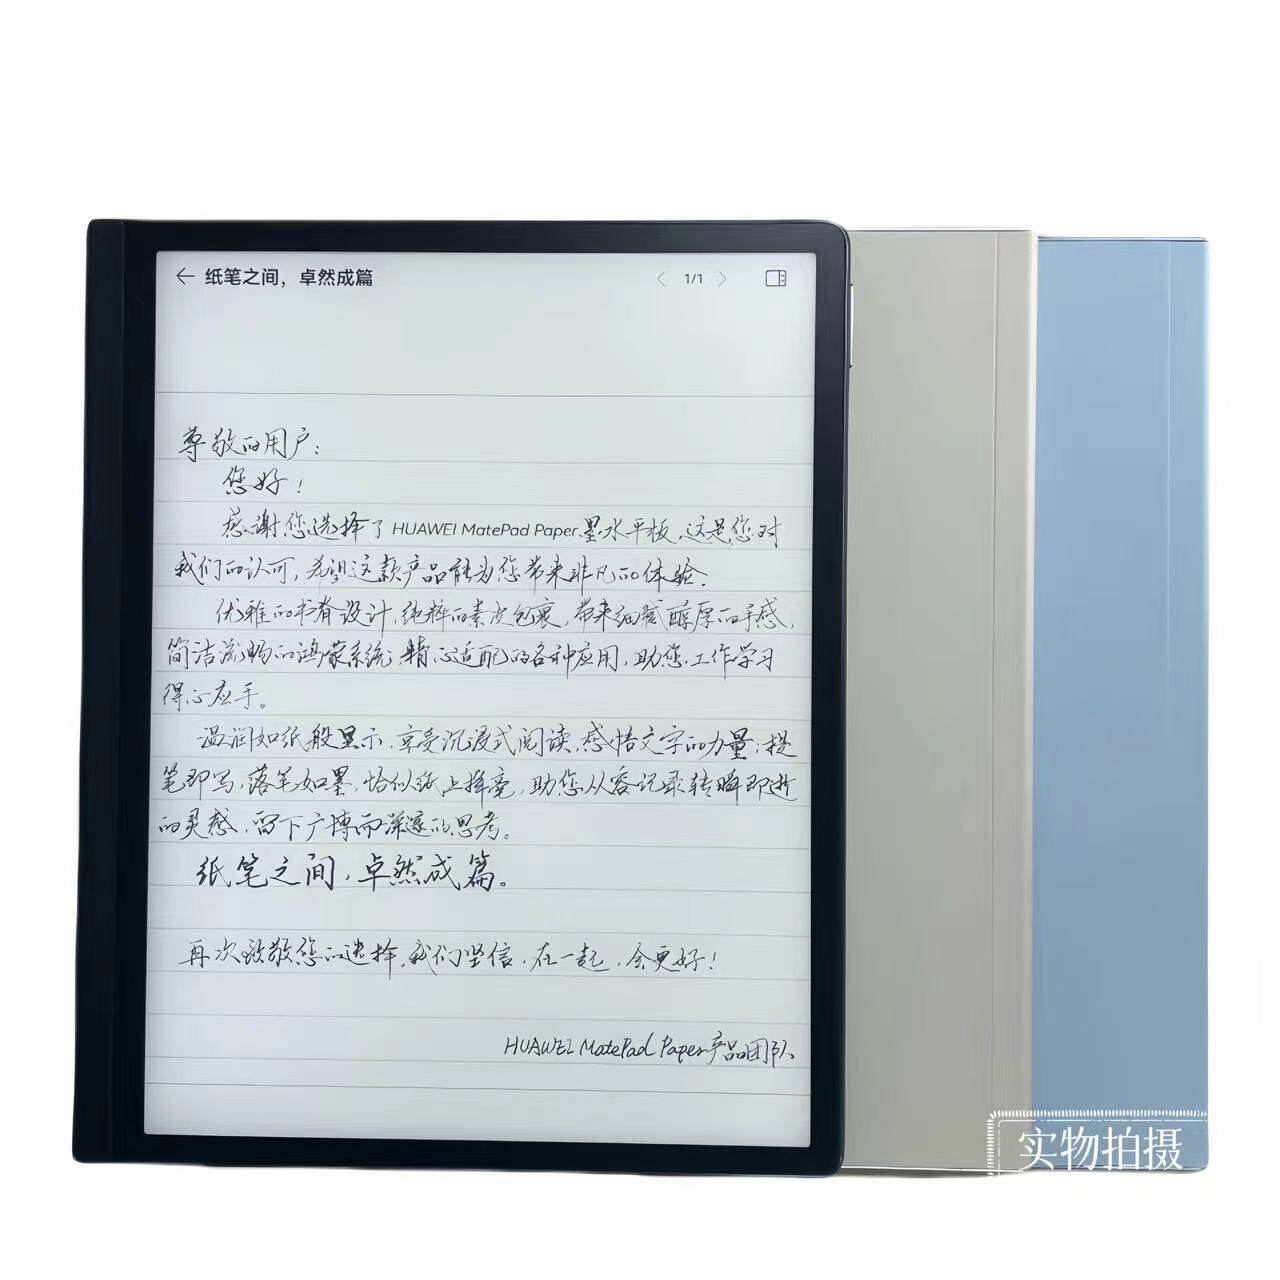 纸笔之间，卓然成篇
1/1
尊敬的用户：
您好！
感谢您选择了 HUAWEI MatePad Paper 墨水平板，这是您对
我们的认可，希望这款产品能为您带来非凡的体验。
优雅的书脊设计，纯粹的素皮包裹，带来细腻醇厚的手感，
简洁流畅的鸿蒙系统，精心适配的各种应用，助您工作学习
得心应手。
温润如纸般显示，享受沉浸式阅读，感悟文字的力量；提
笔即写，落笔如墨，恰似纸上挥毫，助您从容记录转瞬即逝
的灵感，留下广博而深邃的思考。
纸笔之间，卓然成篇。
再次致敬您的选择，我们坚信，在一起，会更好！
HUAWEI MatePad Paper产品团队
实物拍摄